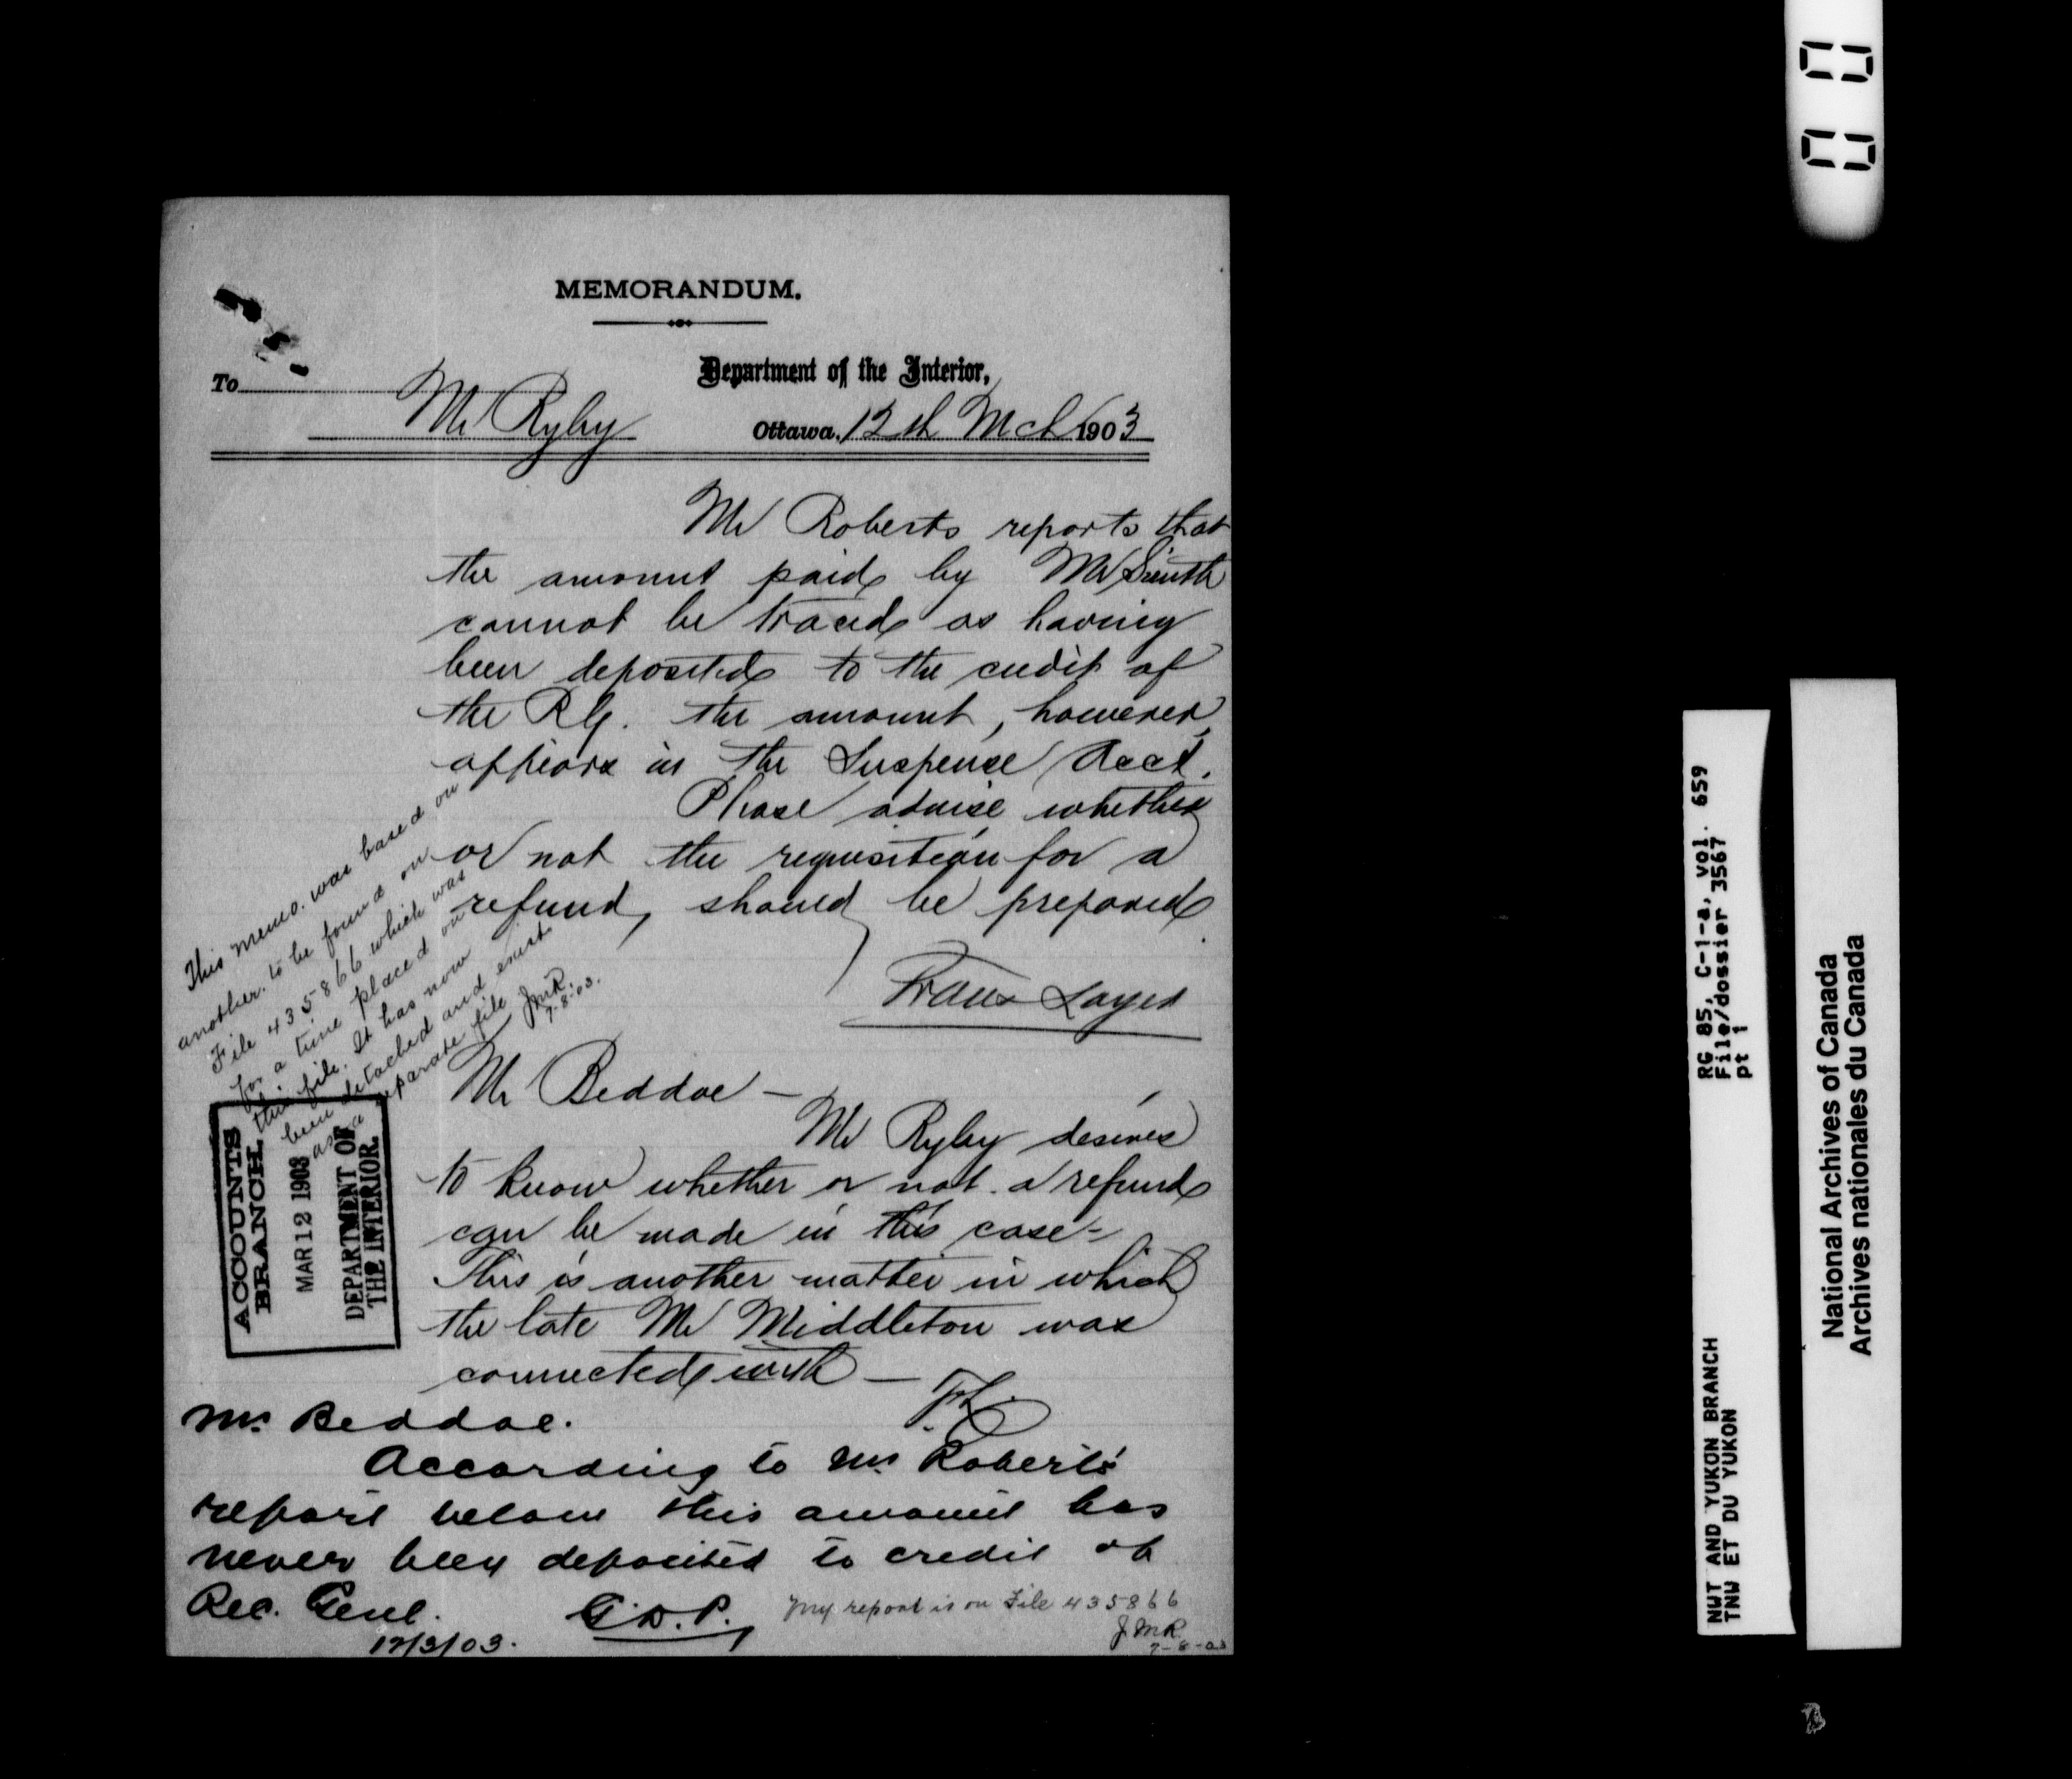 MEMORANDUM.
Department of the Interior,
To Mr Ryley
Ottawa, 12th Mch 1903
Mr Roberts reports that
the amount paid by Mr Smith
cannot be traced as having
been deposited to the credit of
the R.G. the amount, however,
appears in the Suspense Acct.
Please advise whether
or not the requisition for a
refund, should be prepared
This memo. was based on
another. to be found on
File 435866 which was
for a time placed on
this file. It has now
been detached and exists
as a separate file JMR.
7-8-03.
Mr Beddoe —
Mr Ryley desires
to know whether or not a refund
can be made in this case -
This is another matter in which
the late Mr Middleton was
connected with —
ACCOUNTS
BRANCH.
MAR 12 1903
DEPARTMENT OF
THE INTERIOR.
Mr. Beddoe.
According to Mr. Roberts'
report below this amount has
never been deposited to credit of
Rec. Genl.
G.D.P.
12/3/03.
My report is on File 435866
JMR.
7-8-03
RG 85, C-1-a, vol. 659
File/dossier 3567
pt 1
NWT AND YUKON BRANCH
TNW ET DU YUKON
National Archives of Canada
Archives nationales du Canada